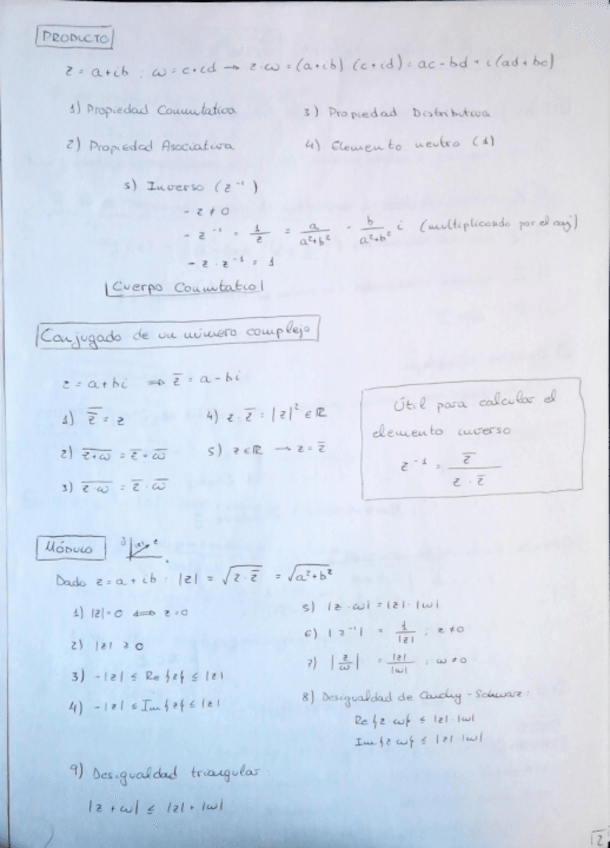 PRODUCTO
z = a+ib ; ω = c+id → z·ω = (a+ib) (c+id) = ac-bd + i(ad+bc)
1) Propiedad Conmutativa
3) Propiedad Distributiva
2) Propiedad Asociativa
4) Elemento neutro (1)
5) Inverso (z⁻¹)
- z ≠ 0
- z⁻¹ = 1/z = a/(a²+b²) - b/(a²+b²) i (multiplicando por el conj)
- z · z⁻¹ = 1
Cuerpo Conmutativo
Conjugado de un número complejo
z = a+bi ⟹ z̅ = a-bi
1) z̿ = z
4) z·z̅ = |z|² ∈ ℝ
2) \overline{z+ω} = z̅ + ω̅
5) z∈ℝ → z = z̅
3) \overline{z·ω} = z̅ · ω̅
Útil para calcular el
elemento inverso
z⁻¹ = z̅/(z·z̅)
MÓDULO
Dado z = a+ib : |z| = √(z·z̅) = √(a²+b²)
1) |z|=0 ⟺ z=0
5) |z·ω| = |z|·|ω|
2) |z| ≥ 0
6) |z⁻¹| = 1/|z| ; z≠0
3) -|z| ≤ Re{z} ≤ |z|
7) |z/ω| = |z|/|ω| ; ω≠0
4) -|z| ≤ Im{z} ≤ |z|
8) Desigualdad de Cauchy-Schwarz:
Re{z·ω} ≤ |z|·|ω|
Im{z·ω} ≤ |z|·|ω|
9) Desigualdad triangular:
|z+ω| ≤ |z|+|ω|
2